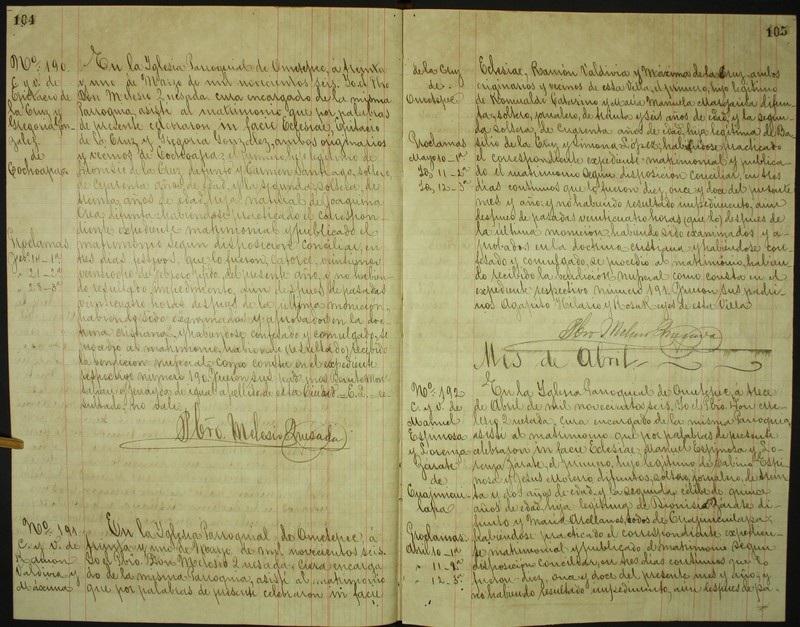 104
Nº. 190.
C. y v. de
la Cruz y
de
Cochoapa.
En la Iglesia Parroquial de Ometepec, a treinta
y uno de Marzo de mil novecientos seis. Yo el Pbo
Don Melesio Quesada cura encargado de la misma
Parroquia, asistí al matrimonio que por palabras
de presente celebraron in facie Eclesiae,
de la Cruz y Gregoria González, ambos originarios
y vecinos de Cochoapa; el primero, hijo legítimo de
de la Cruz difunto y Carmen Santiago, soltero,
de cuarenta años de edad, y la segunda, soltera, de
treinta años de edad, hija natural de Joaquina
difunta habiéndose practicado el correspon
diente expediente matrimonial y publicado el
matrimonio según disposición Conciliar, en
tres días festivos que lo fueron, catorce, veintiuno y
veintiocho de del presente año, y no habien
do resultado impedimento, aun después de pasadas
veinticuatro horas después de la última monición,
habiendo sido examinados y aprobados en la doc-
trina cristiana y habiéndose confesado y comulgado, se
procedió al matrimonio, habiendo (resultado) recibido
la bendición nupcial como consta en el expediente
respectivo número 190. Fueron sus padrinos
de igual apellido de esta Ciudad - E. L. re-
sultado - no vale.
Pbro. Melesio Quesada
Proclamas
14 - 1ª
" 21 - 2ª
" 28 - 3ª
Nº. 191
C. y v. de
Ramón
Valdivia y
Máxima
En la Iglesia Parroquial de Ometepec, a
treinta y uno de Marzo de mil novecientos seis.
Yo el Pbro. Don Melesio Quesada, cura encarga
do de la misma Parroquia, asistí al matrimonio
que por palabras de presente celebraron in facie
105
de la Cruz
de
Ometepec.
Proclamas
Mayo 10 - 1ª
Id. 11 - 2ª
Id. 12 - 3ª
Eclesiae, Ramón Valdivia y Máxima de la Cruz, ambos
originarios y vecinos de esta Villa, el primero, hijo legítimo
de Romualdo Catarino y María Manuela Margarita difun
ta, soltero, jornalero, de treinta y seis años de edad, y la segun
da soltera, de cuarenta años de edad, hija legítima de Ba
silio de la Cruz y Simona López, habiéndose practicado
el correspondiente expediente matrimonial y publica-
do el matrimonio según disposición Conciliar, en tres
días continuos que lo fueron diez, once y doce del presente
mes y año; y no habiendo resultado impedimento, aun
después de pasadas veinticuatro horas (que lo) después de
la última monición, habiendo sido examinados y a-
probados en la doctrina cristiana y habiéndose con-
fesado y comulgado, se procedió al matrimonio, habien
do recibido la bendición nupcial como consta en el
expediente respectivo número 191. Fueron sus padri-
nos Agapito Hilario y Rosa Reyes de esta Villa
Pbro. Melesio Quesada
Mes de Abril.
Nº. 192
C. y v. de
Manuel
Espinosa
y Lorenza
Zárate
de
Cuajinicui-
lapa
Proclamas
Abril 10 - 1ª
" 11 - 2ª
" 12 - 3ª
En la Iglesia Parroquial de Ometepec, a trece
de Abril de mil novecientos seis. Yo el Pbro. Don Me-
lesio Quesada, cura encargado de la misma Parroquia,
asistí al matrimonio que por palabras de presente
celebraron in facie Eclesiae, Manuel Espinosa y Lo-
renza Zárate, el primero, hijo legítimo de Sabino Espi-
nosa y Jesús Molina difuntos, soltero, jornalero, de trein
ta y dos años de edad y la segunda célibe de quince
años de edad, hija legítima de Dionisio Zárate di-
funto y María Arellanos, todos de Cuajinicuilapa,
habiéndose practicado el correspondiente expedien-
te matrimonial y publicado el matrimonio según
disposición Conciliar, en tres días continuos que lo
fueron diez, once y doce del presente mes y año; y
no habiendo resultado impedimento, aun después de pa-